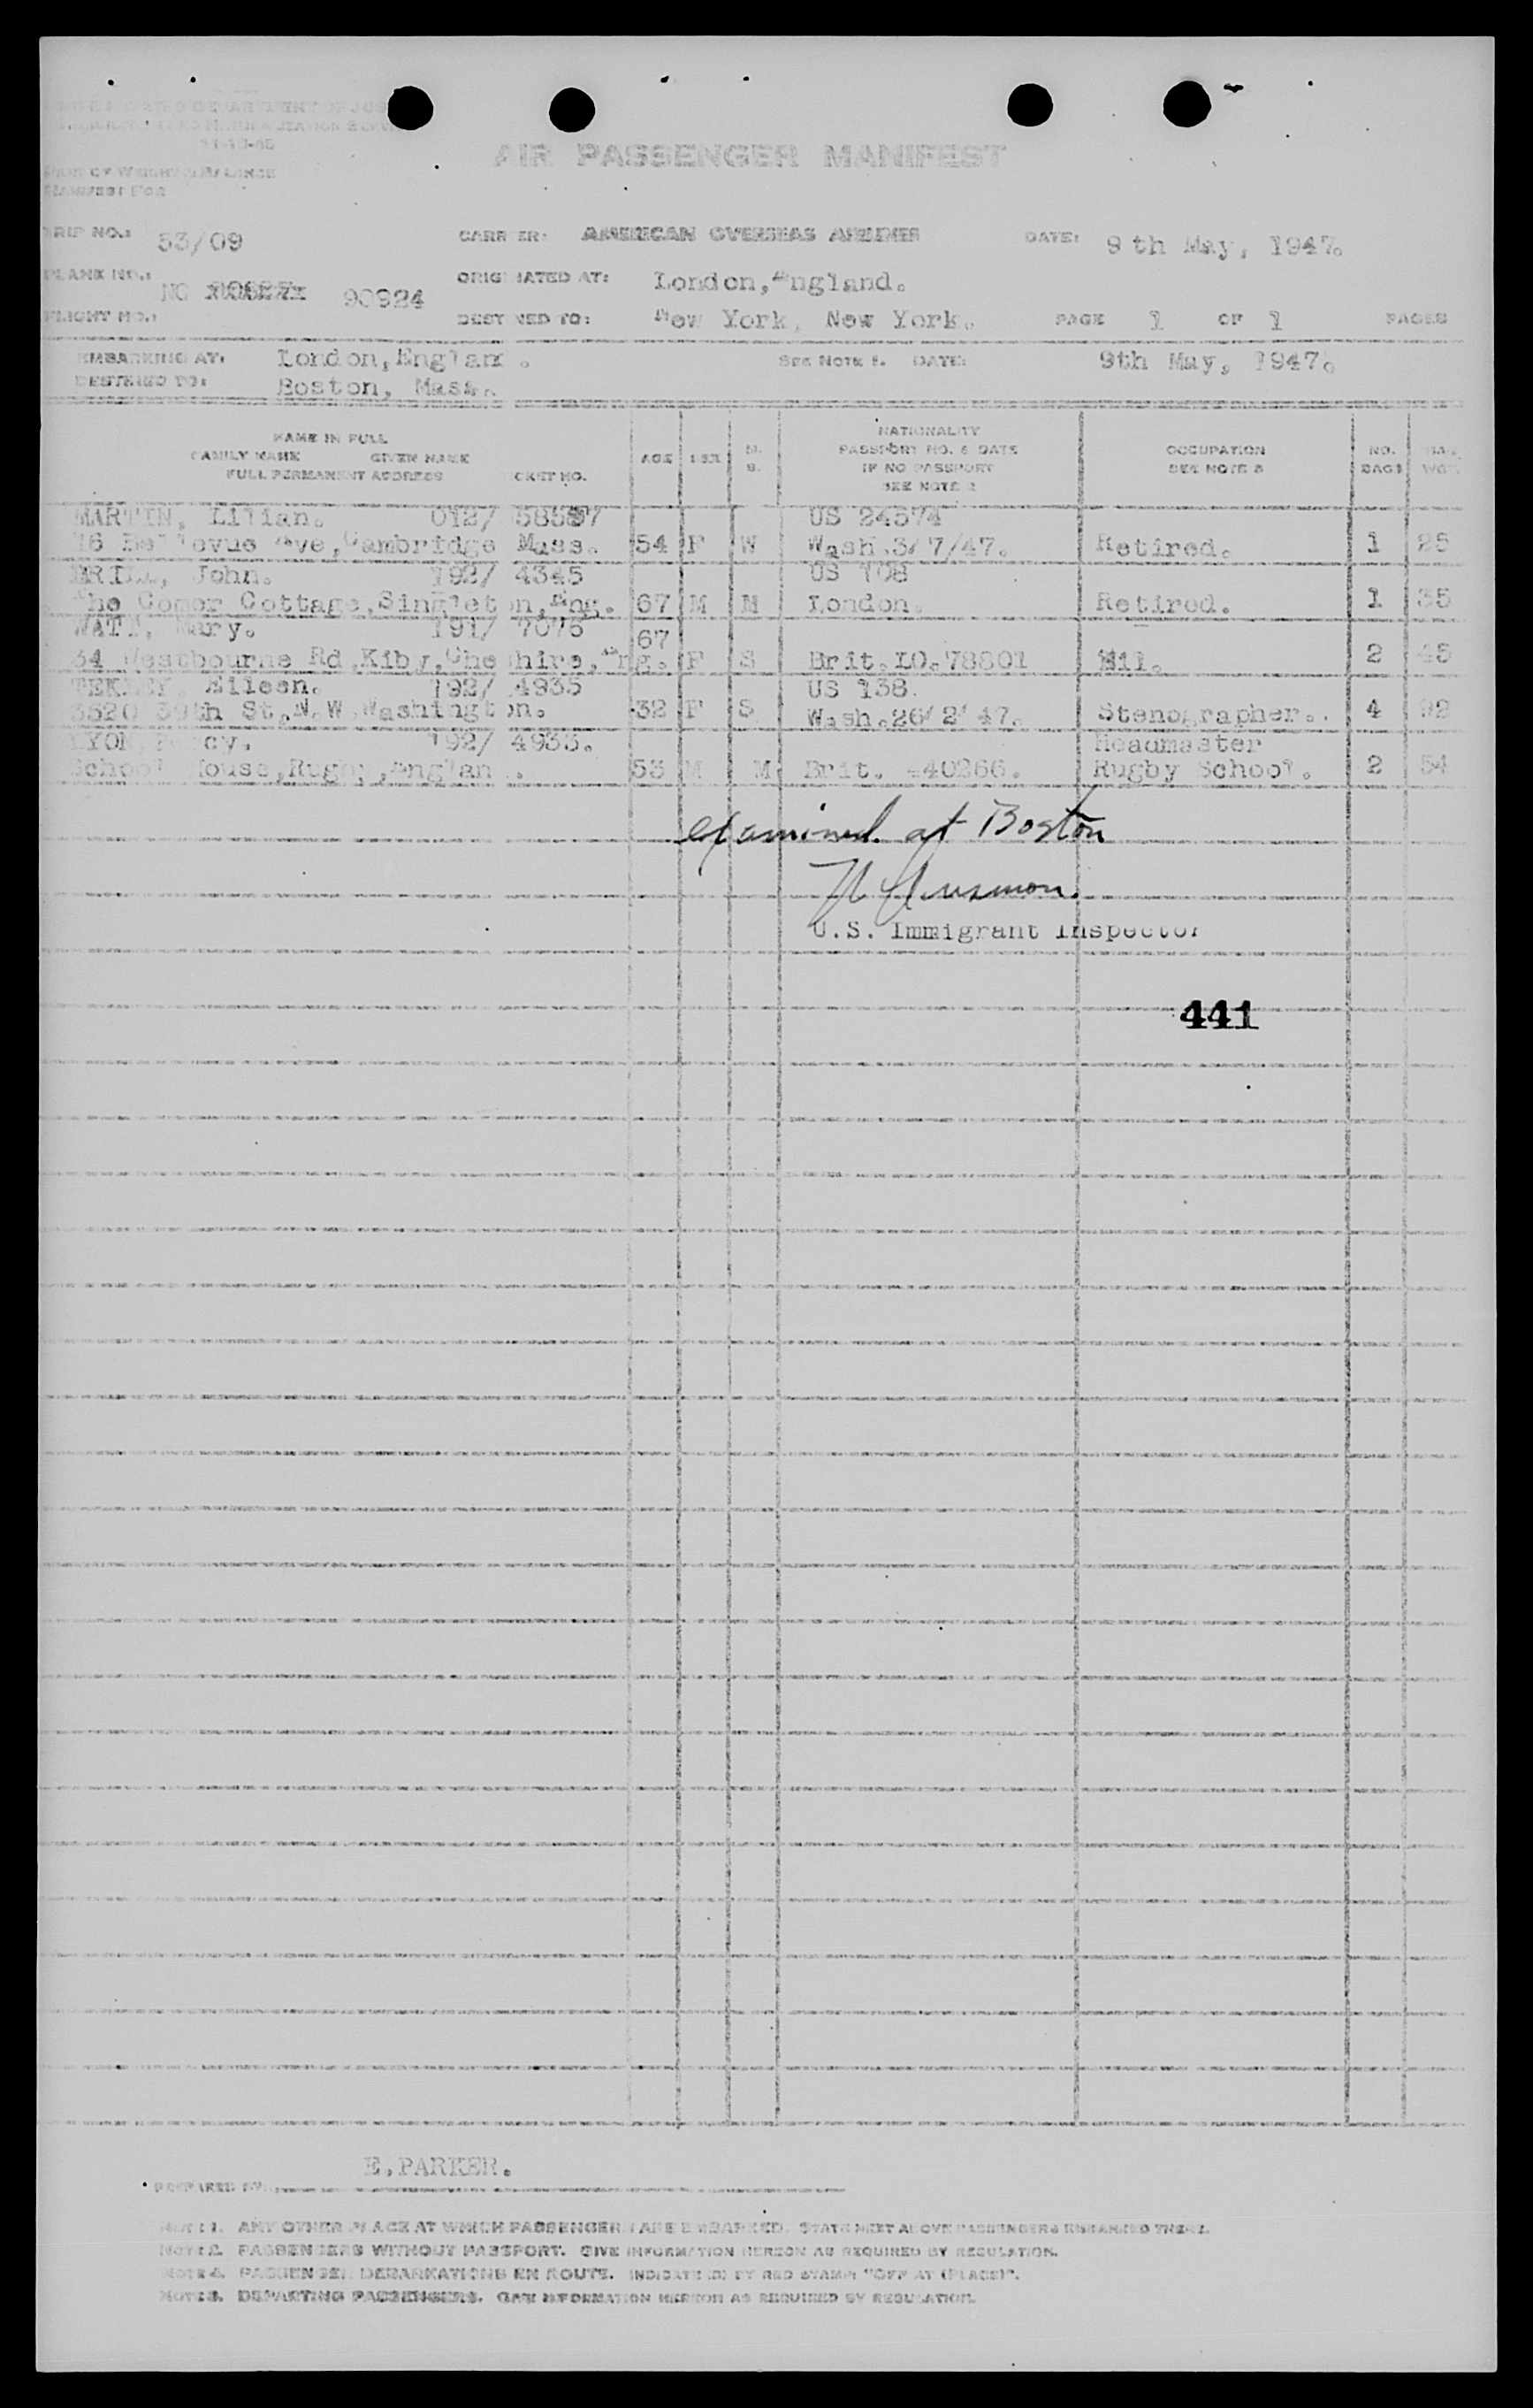 11-10-45
AIR PASSENGER MANIFEST
MANIFEST FOR
TRIP NO.: 53/09 CARRIER: AMERICAN OVERSEAS AIRLINES DATE: 9 th May, 1947.
PLANE NO.: NC 90924 ORIGINATED AT: London, England.
FLIGHT NO.: DESTINED TO: New York, New York. PAGE 1 OF 1 PAGES
EMBARKING AT: London, England. SEE NOTE 1. DATE: 9th May, 1947.
DESTINED TO: Boston, Mass.
NAME IN FULL
FAMILY NAME GIVEN NAME
FULL PERMANENT ADDRESS TICKET NO. AGE SEX M. S. NATIONALITY PASSPORT NO. & DATE IF NO PASSPORT SEE NOTE 2 OCCUPATION SEE NOTE 3 NO. BAGS BAG. WGT.
MARTIN, Lilian. 012/ US 24574
16 Bellevue Ave, Cambridge Mass. 54 F W Wash.3/7/47. Retired. 1 25
John. 192/ 4345 US 108
The Cottage, Singleton, Eng. 67 M M London. Retired. 1 35
Mary. 191/ 7075 67
34 Westbourne Rd, Kiby, Cheshire, Eng. F S Brit. LO.78801 Nil. 2 45
Eileen. 192/ 4935 US 138.
3520 39th St, N.W. Washington. 32 F S Wash.26/2/47. Stenographer. 4 92
LYON, Percy. 192/ 4933. Headmaster
School House, Rugby, England. 53 M M Brit. 440266. Rugby School. 2 54
examined at Boston
U.S. Immigrant Inspector
441
E. PARKER.
PREPARED BY
NOTE 1. ANY OTHER PLACE AT WHICH PASSENGERS ARE EMBARKED. STATE NEXT ABOVE PASSENGERS EMBARKED THERE.
NOTE 2. PASSENGERS WITHOUT PASSPORT. GIVE INFORMATION HEREON AS REQUIRED BY REGULATION.
PASSENGER DEBARKATIONS EN ROUTE. INDICATED BY RED STAMP "OFF AT (PLACE)".
DEPARTING PASSENGERS. GIVE INFORMATION HEREON AS REQUIRED BY REGULATION.